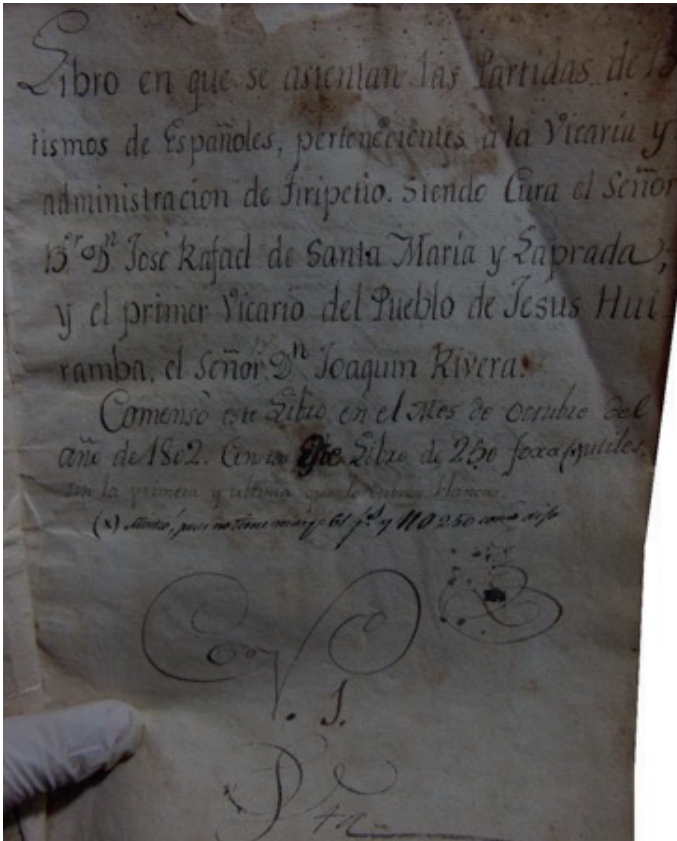 Libro en que se asientan las Partidas de B
tismos de Españoles, pertenecientes à la Vicaria y
administracion de Tiripetio. Siendo Cura el Señor
Br Dn José Rafael de Santa Maria y Laprada;
y el primer Vicario del Pueblo de Jesus Hui
ramba, el Señor Dn Joaquin Rivera.
Comensò este Libro en el Mes de Octubre del
año de 1802. este Libro de 250 foxas (x) utiles
sin la primera y ultima que le blancas.
(x) pues no tiene mas qe 61 fs y no 250 como dise
1.